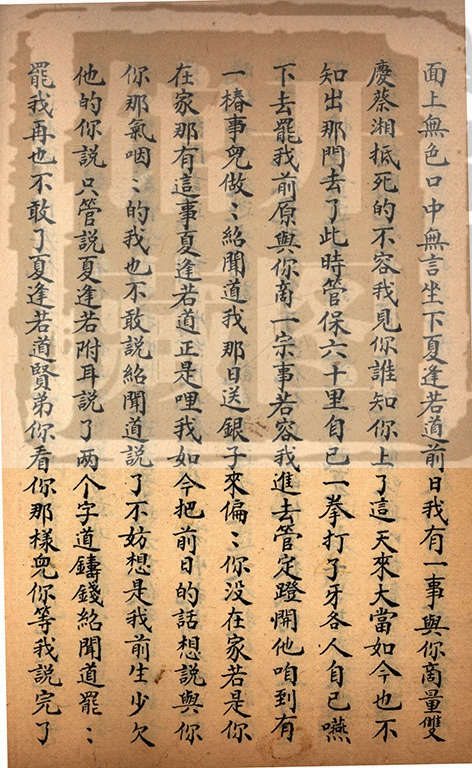 面上無色口中無言坐下夏逢若道前日我有一事與你商量雙
慶蔡湘抵死的不容我見你誰知你上了這天來大當如今也不
知出那門去了此時管保六千里自己一拳打了牙各人自己嚥
下去罷我前原與你商一宗事若容我進去管定蹬開他咱到有
一樁事兒做〻紹聞道我那日送銀子來偏〻你没在家若是你
在家那有這事夏逢若道正是哩我如今把前日的話想說與你
你那氣咽〻的我也不敢說紹聞道說了不妨想是我前生少欠
他的你說只管說夏逢若附耳說了两个字道鑄錢紹聞道罷〻
罷我再也不敢了夏逢若道賢弟你看你那樣兒你等我說完了